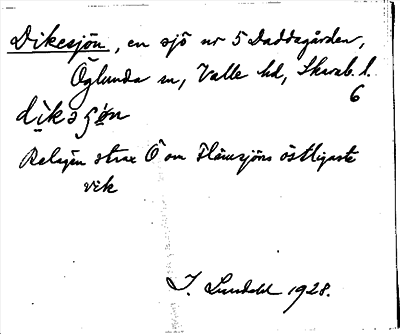 Dikesjön, en sjö nr 5 Daddagården,
Öglunda sn, Valle hd, Skarab. l.
6
dikəʂön
Belägen strax Ö om Flämsjöns östligaste
vik
I. Lundahl 1928.